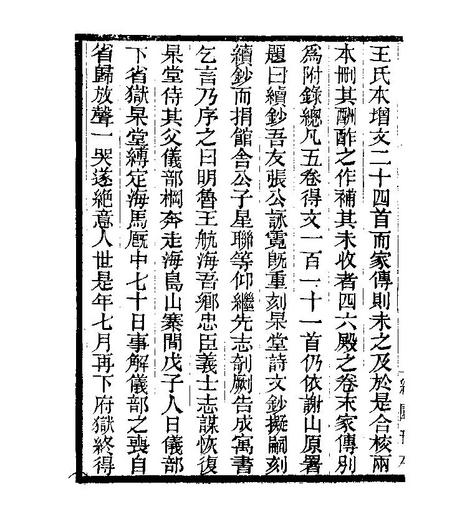 王氏本增文二十四首而家傳則未之及於是合校兩
本刪其酬酢之作補其未收者四六殿之卷末家傳別
為附錄總凡五卷得文一百一十一首仍依謝山原署
題曰續鈔吾友張公詠霓既重刻杲堂詩文鈔擬嗣刻
續鈔而捐館舍公子星聯等仰繼先志剞劂告成寓書
乞言乃序之曰明魯王航海吾鄉忠臣義士志謀恢復
杲堂侍其父儀部棡奔走海島山寨間戊子人日儀部
下省獄杲堂縛定海馬厩中七十日事解儀部之喪自
省歸放聲一哭遂絕意人世是年七月再下府獄終得